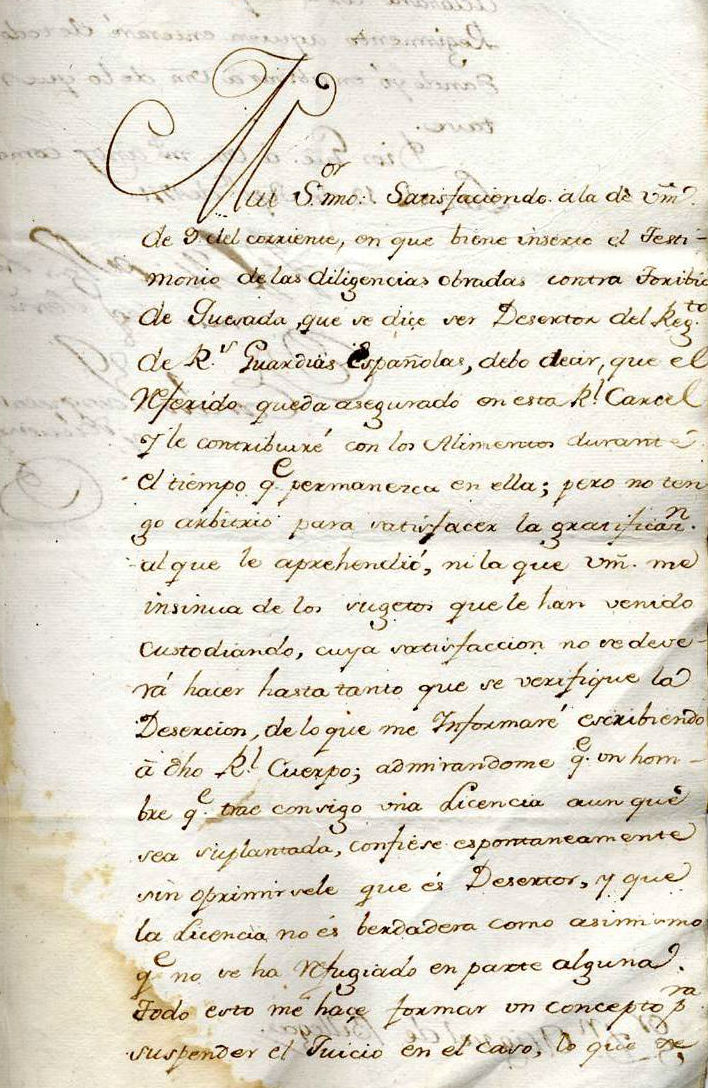 Mui S.or mio: Satisfaciendo a la de Vm̃.
de 9. del corriente, en que biene inserto el Testi-
monio de las diligencias obradas contra Toribio
de Quesada, que se dice ser Desertor del Reg.to
de R.s Guardias Españolas, debo decir, que el
Referido queda asegurado en esta R.l Carcel
y le contribuiré con los Alimentos durante
el tiempo q.e permanezca en ella; pero no ten
go arbitrio para satisfacer la gratificaz.n
al que le aprehendió, ni la que Vm̃. me
insinua de los sugetos que le han venido
custodiando, cuya satisfaccion no se deve-
rá hacer hasta tanto que se verifique la
Desercion, de lo que me Informaré escribiendo
á dho R.l Cuerpo; admirandome q.e un hom-
bre q.e trae consigo una Licencia aunque
sea suplantada, confiese espontaneamente
sin oprimirsele que és Desertor, y que
la Licencia no és berdadera como asimismo
q.e no se ha Refugiado en parte alguna.
Todo esto me hace formar un concepto p.ra
suspender el Juicio en el caso, lo que